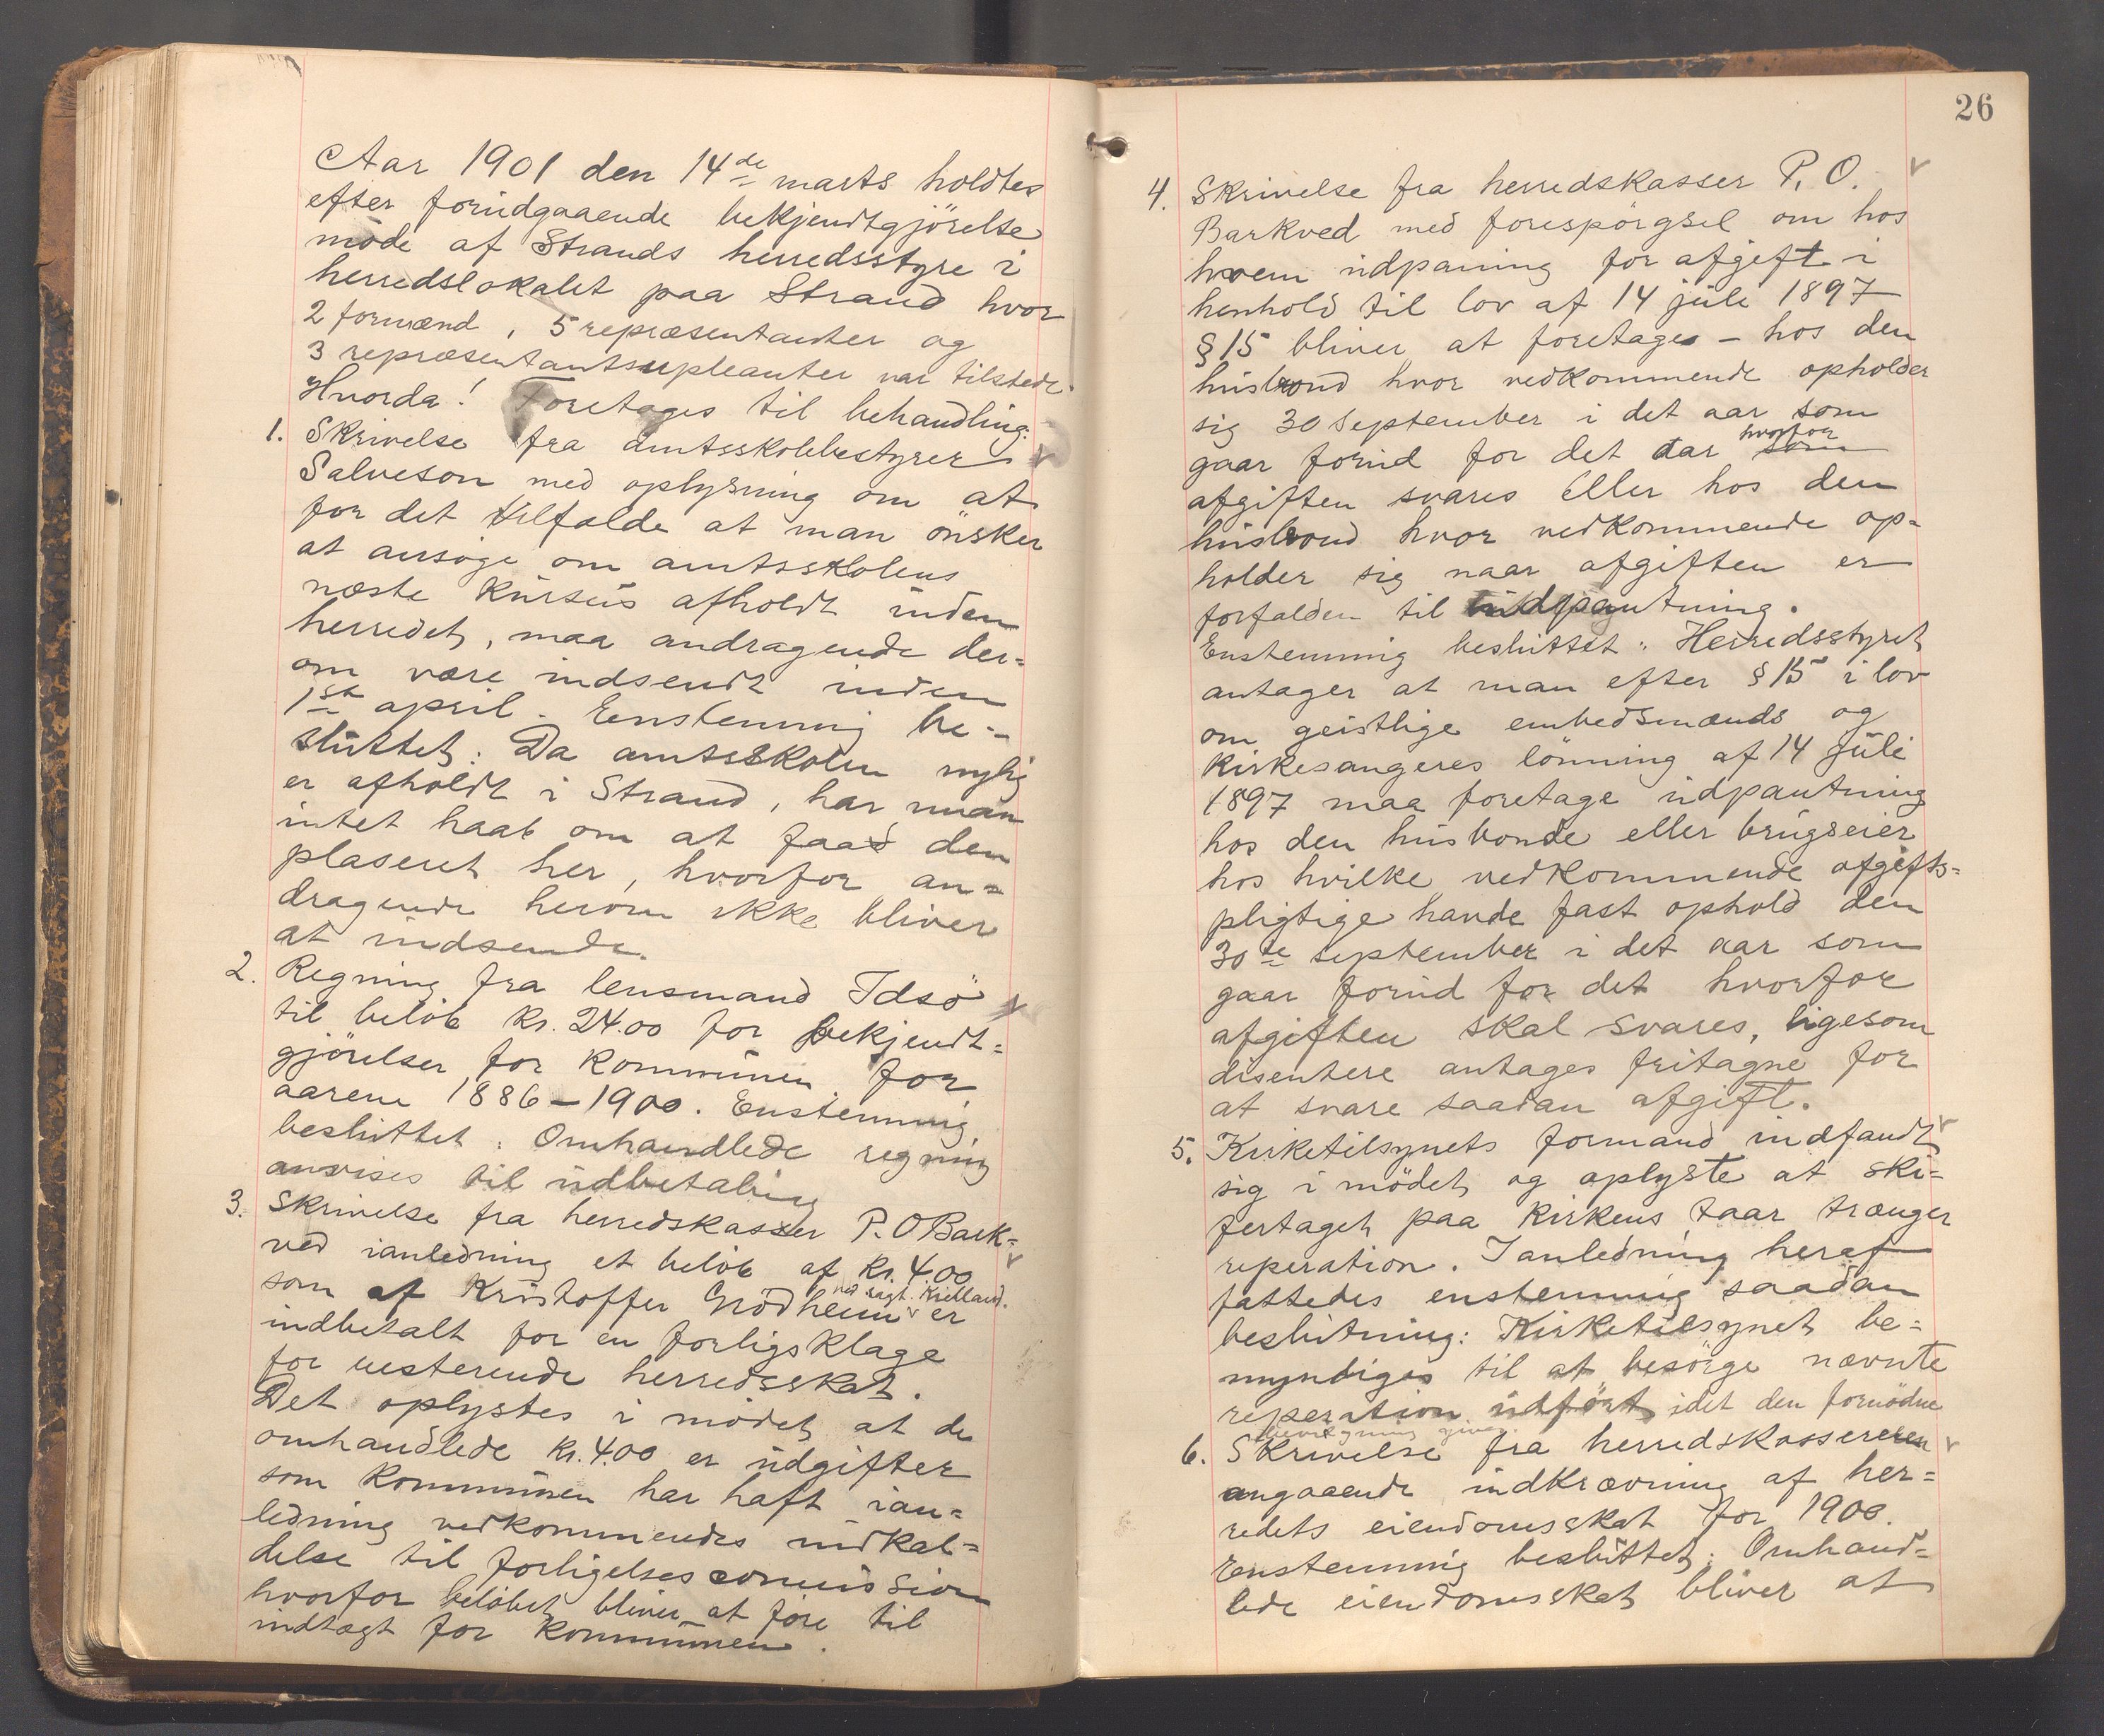 Aar 1901 den 14de marts holdtes
efter forudgaaende bekjendtgjörelse
möde af Strands herredsstyre i
herredslokalet paa Strand hvor
2 formænd, 5 repræsentanter og
3 repræsentantsupleanter var tilstede.
Hvorda! Foretages til behandling.
1. Skrivelse fra amtsskolebestyrer
Salveson med oplysning om at
for det tilfælde at man önsker
at ansöge om amtsskolens
næste kursus afholdt inden
herredet, maa andragende der=
om være indsendt inden
1ste april. Eenstemmig be=
sluttet: Da amtsskolen nylig
er afholdt i Strand, har man
intet haab om at faa den
plaseret her, hvorfor an=
dragende herom ikke bliver
at indsende.
2. Regning fra lensmand Idsö
til belöb kr. 24.00 for bekjendt=
gjörelser for kommunen for
aarene 1886-1900. Enstemmig
besluttet: Omhandlede regning
anvises til udbetaling
3. Skrivelse fra herredskasser P. O Bark=
ved ianledning et belöb af kr. 4.00
ved sagf. Kielland.
som af Kristoffer Grödheim er
indbetalt for en forligsklage
for resterende herredsskat.
Det oplystes i mödet at de
omhandlede kr. 4.00 er udgifter
som kommunen har haft ian=
ledning vedkommendes indkal=
delse til forligelsescommission
hvorfor belöbet bliver at före til
indtægt for kommunen.
26
4. Skrivelse fra herredskasser P. O.
Barkved med forespörgsel om hos
hvem udpaning for afgift i
henhold til lov af 14 juli 1897
§ 15 bliver at foretages - hos den
husbond hvor vedkommende opholder
sig 30 September i det aar som
gaar forud for det aar som
hvorfor
afgiften svares eller hos den
husbond hvor vedkommende op=
holder sig naar afgiften er
forfalden til udpantning.
Enstemmig besluttet: Herredsstyret
antager at man efter § 15 i lov
om geistlige embedsmænds og
kirkesangeres lönning af 14 Juli
1897 maa foretage udpantning
hos den husbonde eller brugseier
hos hvilke vedkommende afgifts=
pligtige havde fast ophold den
30te september i det aar som
gaar forud for det hvorfor
afgiften skal svares, ligesom
disentere antages fritagne for
at svare saadan afgift.
5. Kirketilsynets formand indfandt
sig i mödet og oplyste at ski=
fertaget paa kirkens taar trænger
reperation. I anledning heraf
fattedes enstemmig saadan
beslutning: Kirketilsynet be=
myndiges til at besörge nævnte
reperation udfört idet den fornödne
bevilgning gives.
6. Skrivelse fra herredskasereren
angaaende indkrævning af her=
redets eiendomsskat for 1900.
Enstemmig besluttet: Omhand=
lede eiendomsskat bliver at